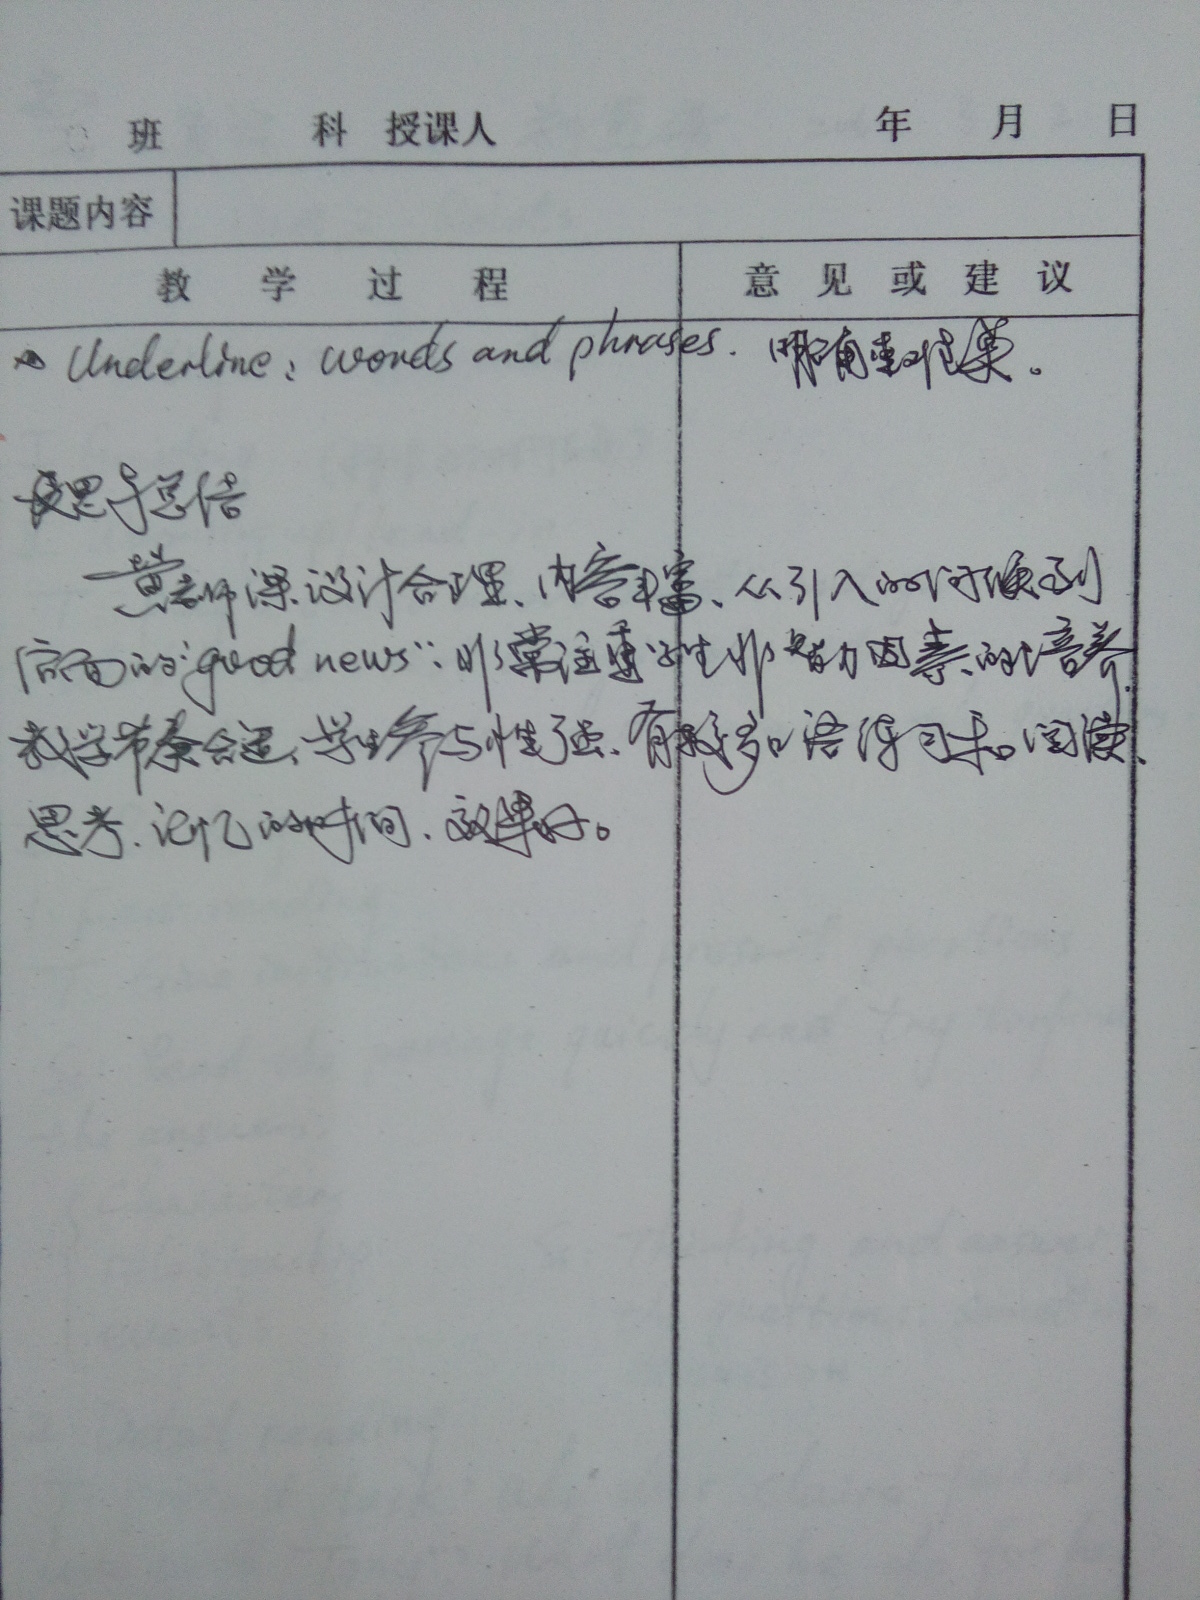 班 科 授课人 年 月 日
课题内容
教 学 过 程 意 见 或 建 议
Underline: words and phrases. 明确重难点。
反思与总结
黄老师课设计合理、内容丰富、从引入的时候到
后面的"good news"; 非常注重学生非智力因素的培养.
教学节奏合适、学生参与性强、有较多口语练习和阅读、
思考、记忆的时间、效果好。